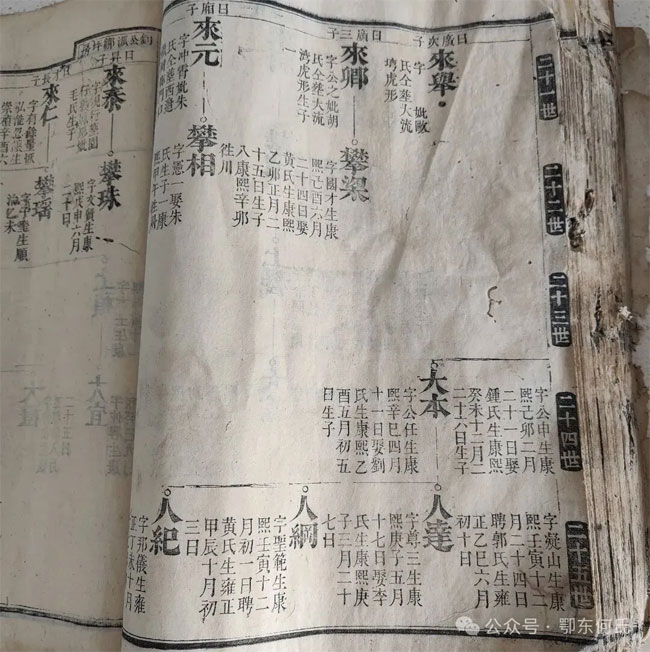 二十一世
二十二世
二十三世
二十四世
二十五世
日廣次子
來舉
字 妣歐
氏仝塟大流
塆虎形
日廣三子
來卿
字公之妣胡
氏仝塟大流
灣虎形生子
一
子
來元
字沖霄妣朱
氏仝塟西
攀渠
字國才生康
熙己酉六月
二十四日娶
黃氏生康熙
乙卯正月二
十五日生子
八康熙辛卯
徃川
攀相
字憲一娶朱
氏生子一康
字公申生康
熙己卯二月
二十一日娶
鍾氏生康熙
癸未十二月二
十六日生子
大本
字公任生康
熙辛巳四月
十一日娶劉
氏生康熙乙
酉五月初五
日生子
字凝山生康
熙壬寅十二
月二十四日
聘郭氏生雍
正乙巳六月
初十日
人達
字尊三生康
熙庚子五月
十七日娶李
氏生康熙庚
子三月二十
七日
人綱
字聖範生康
熙壬寅十二
月初一日聘
黃氏生雍正
甲辰十月初
三日
人紀
字邦儀生雍
正丁未十月
來泰
王氏生子
攀珠
字文質生康
熙戊申六月
二十日
來仁
攀瑀
公众号 · 鄂东何氏